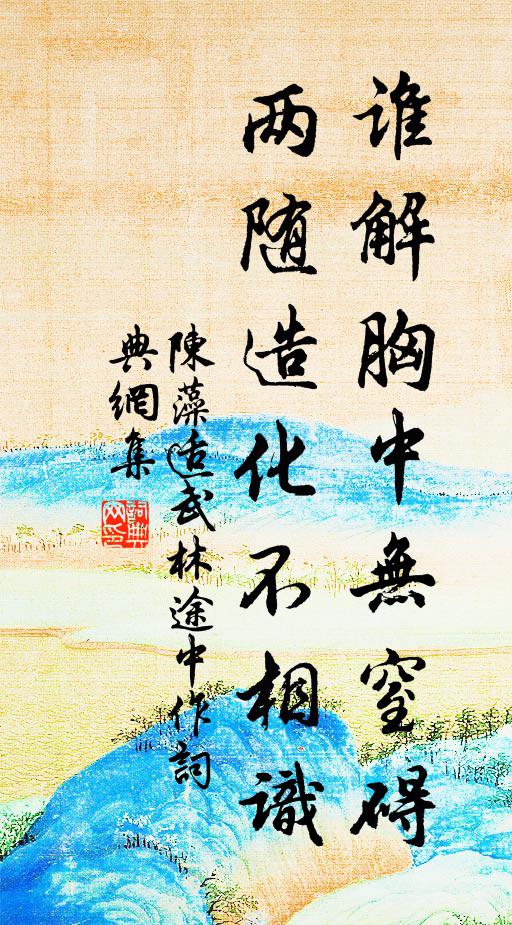 谁解胸中無窒碍
两随造化不相識
陳藻适武林途中作詞
典網集
詞典
网印